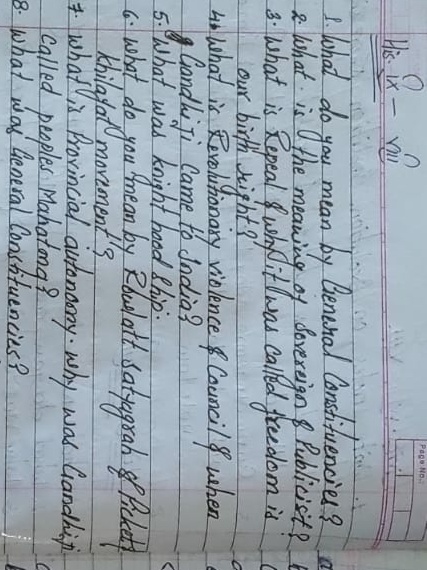 His - ix - viii
Page No.:
1. What do you mean by General Constituencies?
2. What is the meaning of Sovereign & Publicist?
3. What is Repeal & why it was called freedom is
our birth right?
4. What is Revolutionary violence & Council & when
Gandhi Ji came to India?
5. What was knight hood ship.
6. What do you mean by Rowlatt satygrah &
khilafat movement?
7. What is Provincial autonomy. Why was Gandhi Ji
called peoples Mahatma?
8. What was General Constituencies?